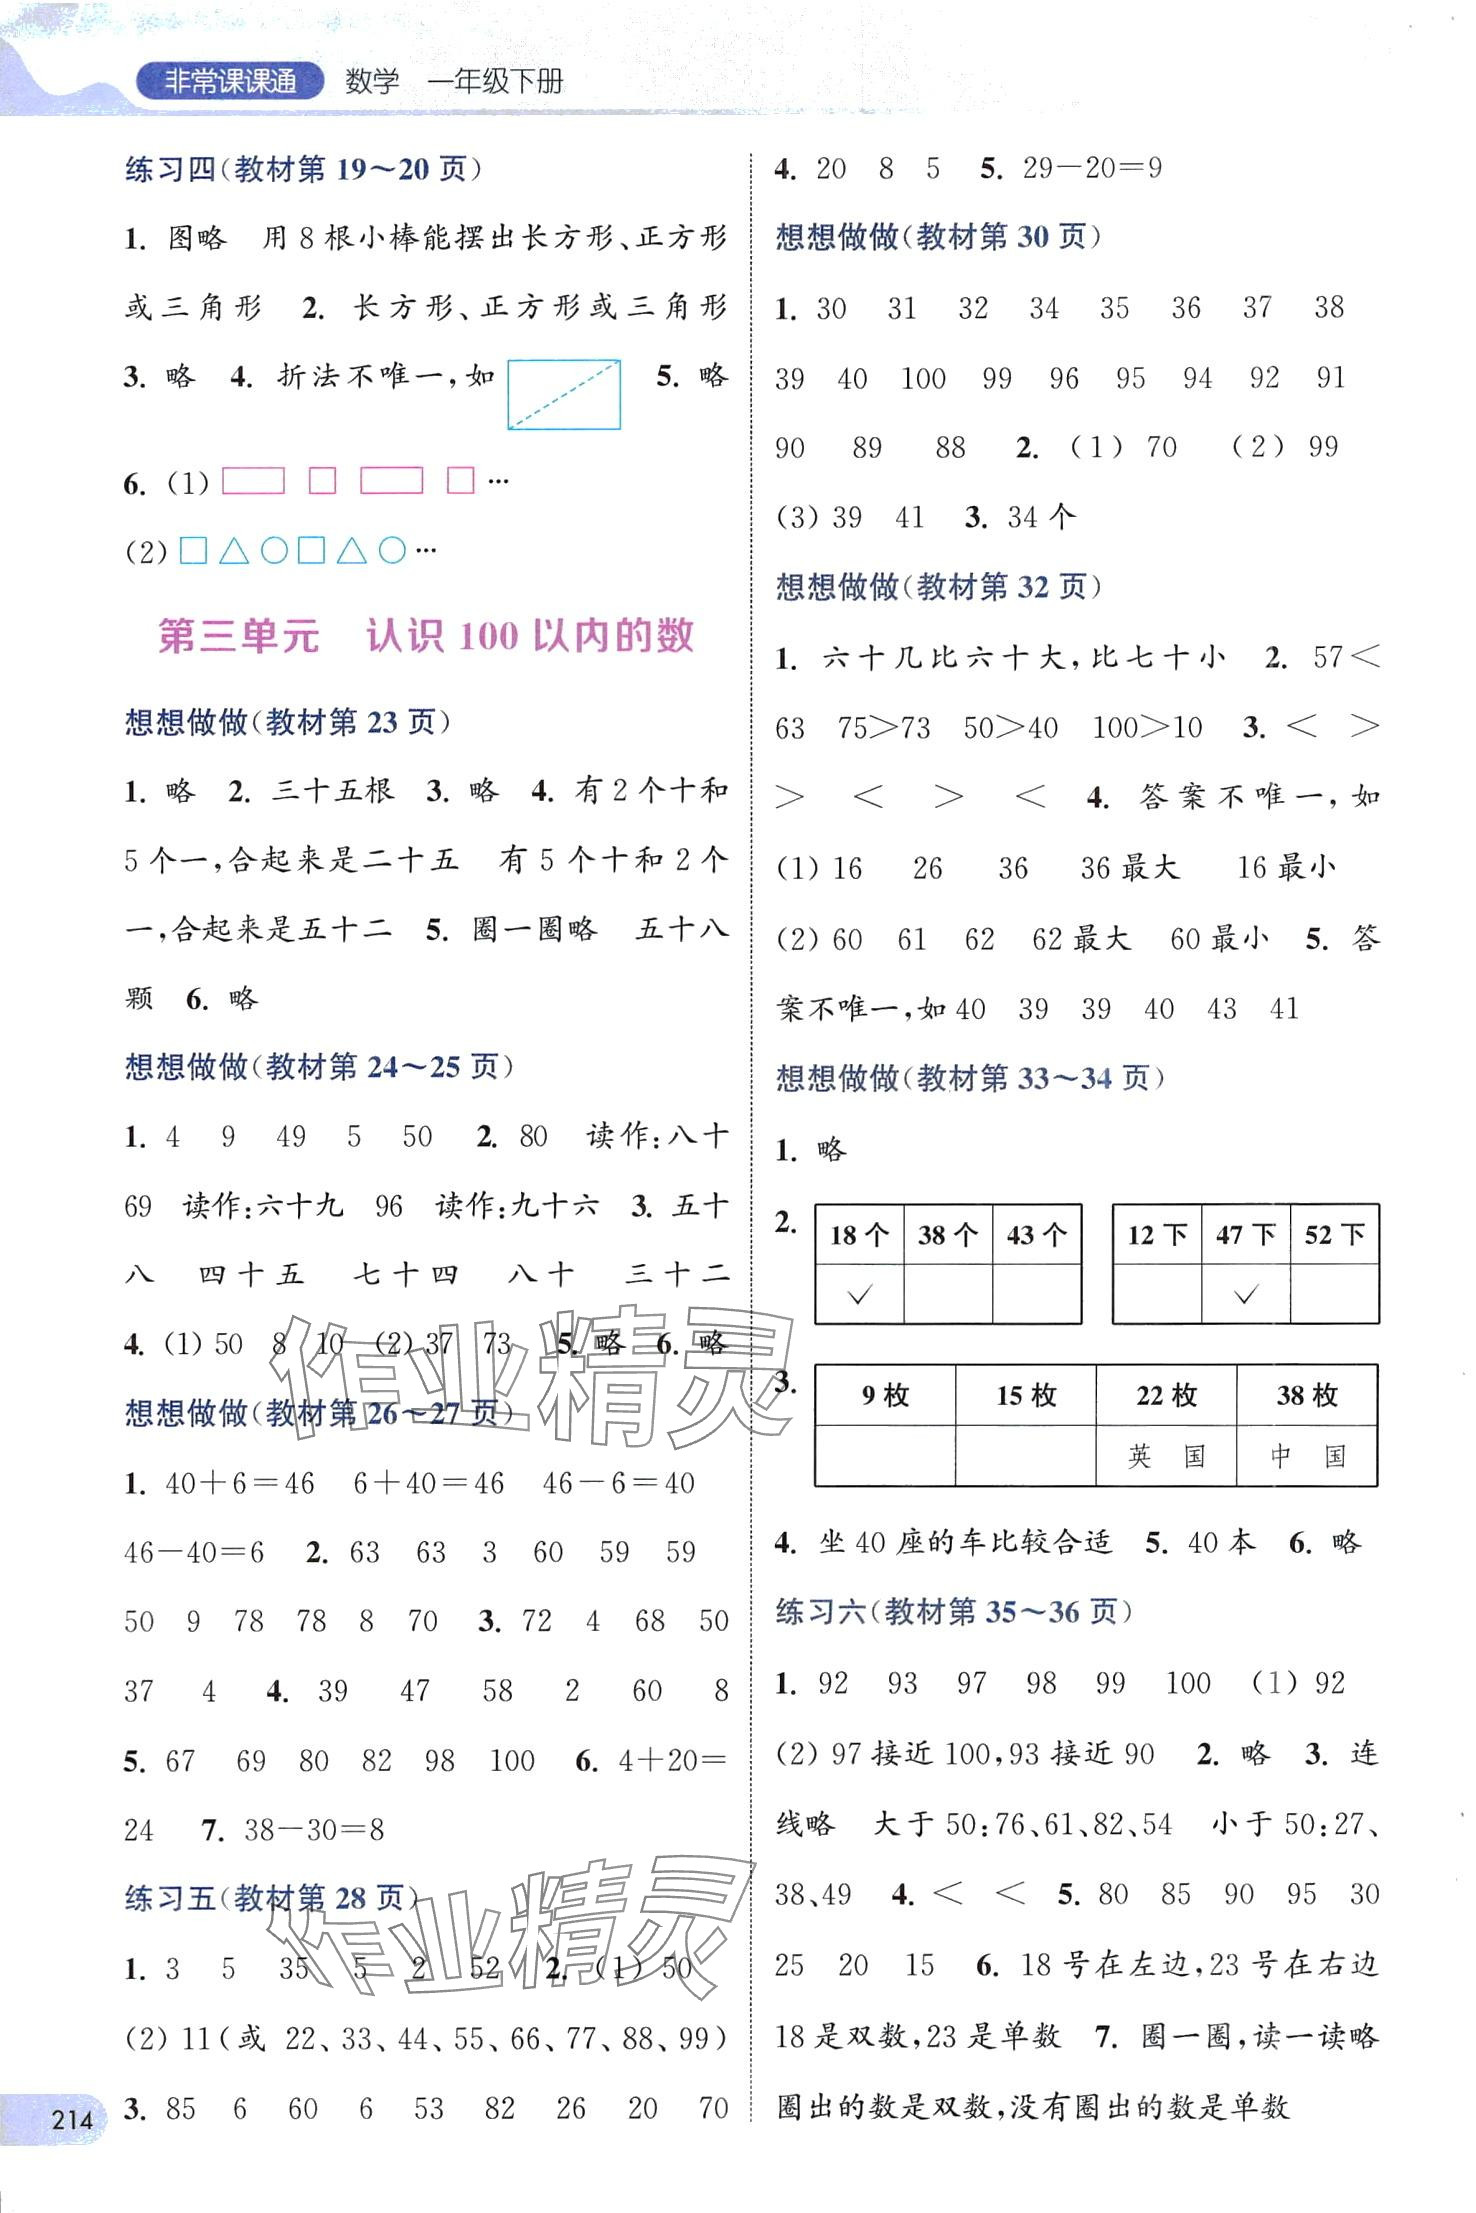 非常课课通 数学 一年级下册
练习四(教材第 19～20 页)
1. 图略 用 8 根小棒能摆出长方形、正方形
或三角形 2. 长方形、正方形或三角形
3. 略 4. 折法不唯一,如 5. 略
6. (1) …
(2) …
第三单元 认识 100 以内的数
想想做做(教材第 23 页)
1. 略 2. 三十五根 3. 略 4. 有 2 个十和
5 个一,合起来是二十五 有 5 个十和 2 个
一,合起来是五十二 5. 圈一圈略 五十八
颗 6. 略
想想做做(教材第 24～25 页)
1. 4 9 49 5 50 2. 80 读作:八十
69 读作:六十九 96 读作:九十六 3. 五十
八 四十五 七十四 八十 三十二
4. (1) 50 8 10 (2) 37 73 5. 略 6. 略
想想做做(教材第 26～27 页)
1. 40+6=46 6+40=46 46-6=40
46-40=6 2. 63 63 3 60 59 59
50 9 78 78 8 70 3. 72 4 68 50
37 4 4. 39 47 58 2 60 8
5. 67 69 80 82 98 100 6. 4+20=
24 7. 38-30=8
练习五(教材第 28 页)
1. 3 5 35 5 2 52 2. (1) 50
(2) 11(或 22、33、44、55、66、77、88、99)
3. 85 6 60 6 53 82 26 20 70
4. 20 8 5 5. 29-20=9
想想做做(教材第 30 页)
1. 30 31 32 34 35 36 37 38
39 40 100 99 96 95 94 92 91
90 89 88 2. (1) 70 (2) 99
(3) 39 41 3. 34 个
想想做做(教材第 32 页)
1. 六十几比六十大,比七十小 2. 57<
63 75>73 50>40 100>10 3. < >
> < > < 4. 答案不唯一,如
(1) 16 26 36 36 最大 16 最小
(2) 60 61 62 62 最大 60 最小 5. 答
案不唯一,如 40 39 39 40 43 41
想想做做(教材第 33～34 页)
1. 略
2. 18 个 38 个 43 个 12 下 47 下 52 下
✓ ✓
3. 9 枚 15 枚 22 枚 38 枚
英 国 中 国
4. 坐 40 座的车比较合适 5. 40 本 6. 略
练习六(教材第 35～36 页)
1. 92 93 97 98 99 100 (1) 92
(2) 97 接近 100,93 接近 90 2. 略 3. 连
线略 大于 50:76、61、82、54 小于 50:27、
38、49 4. < < 5. 80 85 90 95 30
25 20 15 6. 18 号在左边,23 号在右边
18 是双数,23 是单数 7. 圈一圈,读一读略
圈出的数是双数,没有圈出的数是单数
214
作业精灵
作业精灵